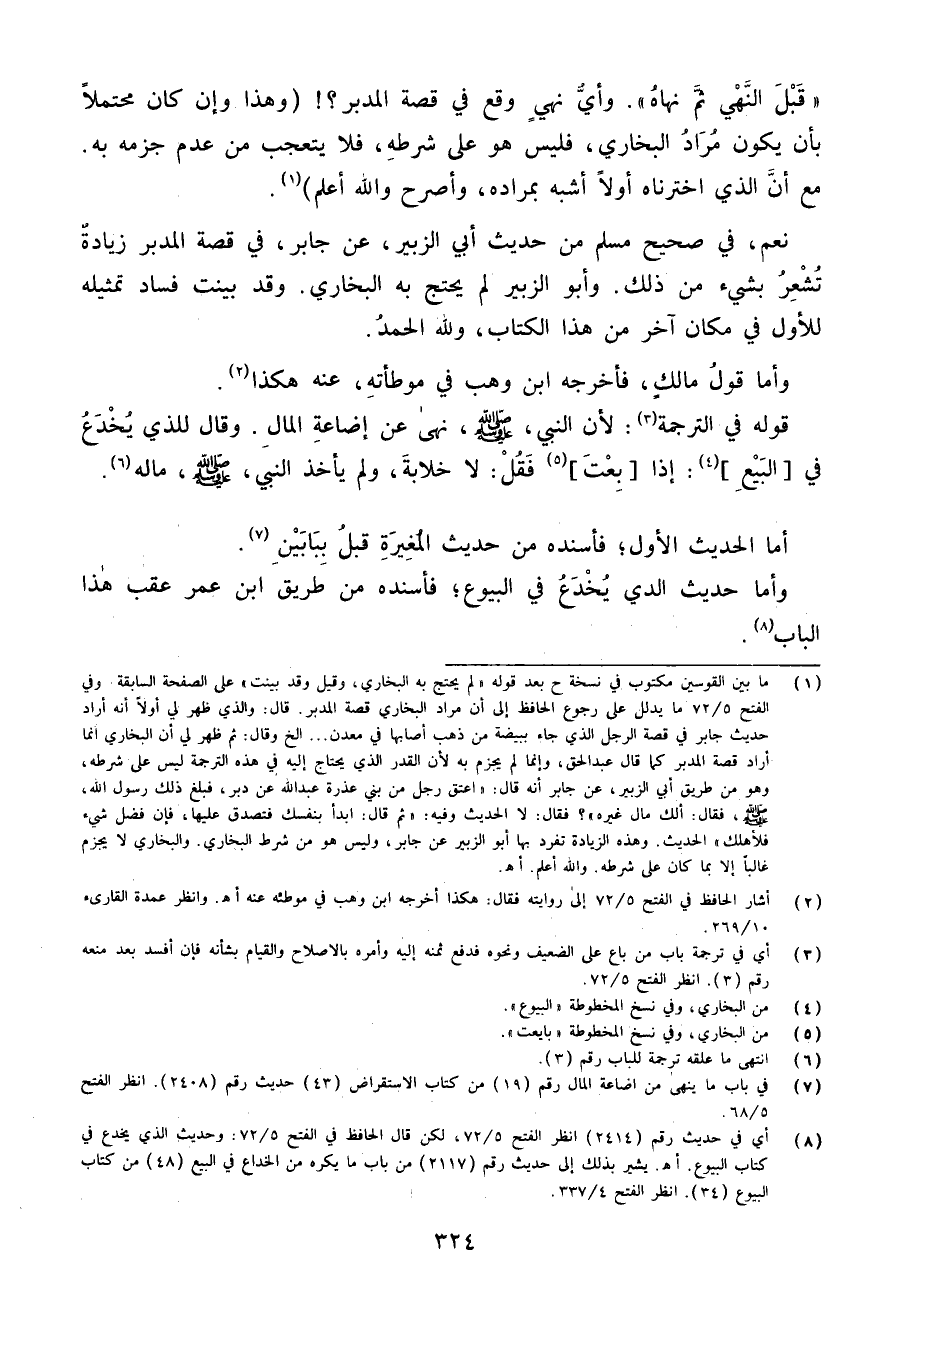 « قَبْلَ النَّهْي ثمَّ نهاهُ». وأيُّ نهيٍ وقع في قصة المدبر؟! (وهذا وإن كان محتملاً
بأن يكون مُرَادُ البخاري، فليس هو على شرطهِ، فلا يتعجب من عدم جزمه به.
مع أنَّ الذي اخترناه أولاً أشبه بمراده، وأصرح والله أعلم)(١).
نعم، في صحيح مسلم من حديث أبي الزبير، عن جابر، في قصة المدبر زيادةٌ
تُشْعِرُ بشيء من ذلك. وأبو الزبير لم يحتج به البخاري. وقد بينت فساد تمثيله
للأول في مكان آخر من هذا الكتاب، ولله الحمدُ.
وأما قولُ مالكٍ، فأخرجه ابن وهب في موطأتهِ، عنه هكذا(٢).
قوله في الترجمة(٣): لأن النبي، ﷺ، نهىٰ عن إضاعةِ المالِ. وقال للذي يُخْدَعُ
في [البَيْعِ](٤): إذا [بِعْتَ](٥) فَقُلْ: لا خلابةَ، ولم يأخذ النبي، ﷺ، ماله(٦).
أما الحديث الأول؛ فأسنده من حديث المُغِيرَةِ قبلُ بِبَابَيْنِ(٧).
وأما حديث الدي يُخْدَعُ في البيوع؛ فأسنده من طريق ابن عمر عقب هٰذا
الباب(٨).
(١) ما بين القوسين مكتوب في نسخة ح بعد قوله «لم يحتج به البخاري، وقيل وقد بينت» على الصفحة السابقة وفي
الفتح ٧٢/٥ ما يدلل على رجوع الحافظ إلى أن مراد البخاري قصة المدبر. قال: والذي ظهر لي أولاً أنه أراد
حديث جابر في قصة الرجل الذي جاء ببيضة من ذهب أصابها في معدن... الخ وقال: ثم ظهر لي أن البخاري انما
أراد قصة المدبر كما قال عبدالحق، وإنما لم يجزم به لأن القدر الذي يحتاج إليه في هذه الترجمة ليس على شرطه،
وهو من طريق أبي الزبير، عن جابر أنه قال: «اعتق رجل من بني عذرة عبدالله عن دبر، فبلغ ذلك رسول الله،
ﷺ، فقال: ألك مال غيره»؟ فقال: لا الحديث وفيه: «ثم قال: ابدأ بنفسك فتصدق عليها، فإن فضل شيء
فلأهلك» الحديث. وهذه الزيادة تفرد بها أبو الزبير عن جابر، وليس هو من شرط البخاري. والبخاري لا يجزم
غالباً إلا بما كان على شرطه. والله أعلم. أ هـ.
(٢) أشار الحافظ في الفتح ٧٢/٥ إلى روايته فقال: هكذا أخرجه ابن وهب في موطئه عنه أ هـ. وانظر عمدة القارىء
٢٦٩/١٠.
(٣) أي في ترجمة باب من باع على الضعيف ونحوه فدفع ثمنه إليه وأمره بالاصلاح والقيام بشأنه فإن أفسد بعد منعه
رقم (٣). انظر الفتح ٧٢/٥.
(٤) من البخاري، وفي نسخ المخطوطة «البيوع».
(٥) من البخاري، وفي نسخ المخطوطة «بايعت».
(٦) انتهى ما علقه ترجمة للباب رقم (٣).
(٧) في باب ما ينهى من اضاعة المال رقم (١٩) من كتاب الاستقراض (٤٣) حديث رقم (٢٤٠٨). انظر الفتح
٦٨/٥.
(٨) أي في حديث رقم (٢٤١٤) انظر الفتح ٧٢/٥، لكن قال الحافظ في الفتح ٧٢/٥: وحديث الذي يخدع في
كتاب البيوع. أ هـ. يشير بذلك إلى حديث رقم (٢١١٧) من باب ما يكره من الخداع في البيع (٤٨) من كتاب
البيوع (٣٤). انظر الفتح ٣٣٧/٤.
٣٢٤